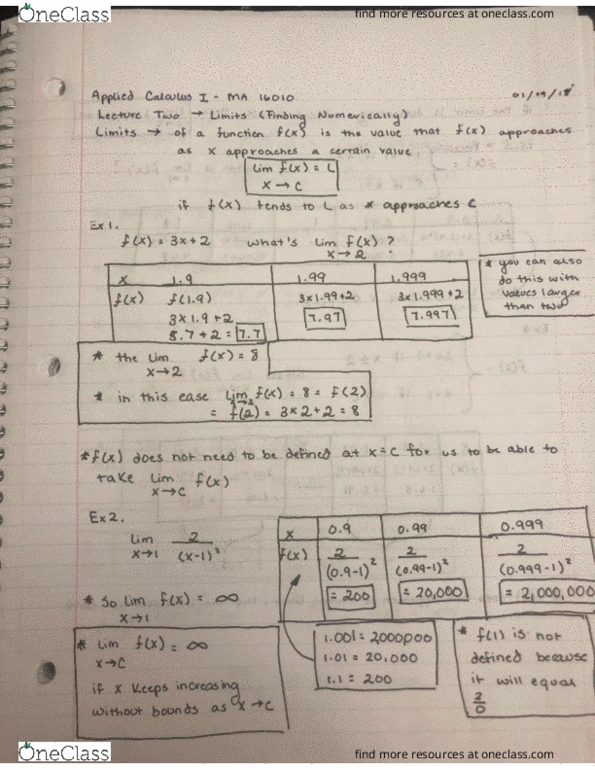 OneClass
find more resources at oneclass.com
Applied Calculus I - MA 16010
Lecture Two → Limits (Finding Numerically)
Limits → of a function f(x) is the value that f(x) approaches
as x approaches a certain value
Lim f(x) = L
x→c
if f(x) tends to L as x approaches c
Ex 1.
f(x) = 3x+2 what's Lim f(x)?
x→2
x 1.9 1.99 1.999
f(x) f(1.9) 3x1.99+2 3x1.999+2
3x1.9+2 7.97 7.997
5.7+2 = 7.7
* you can also
do this with
values larger
than two
* the Lim f(x) = 8
x→2
* in this case Lim f(x) = 8 = f(2)
x→2
= f(2) = 3x2+2 = 8
* f(x) does not need to be defined at x=c for us to be able to
take Lim f(x)
x→c
Ex 2.
Lim 2/(x-1)²
x→1
x 0.9 0.99 0.999
f(x) 2/(0.9-1)² 2/(0.99-1)² 2/(0.999-1)²
= 200 = 20,000 = 2,000,000
* So Lim f(x) = ∞
x→1
* Lim f(x) = ∞
x→c
if x keeps increasing
without bounds as x→c
1.001 = 2000,000
1.01 = 20,000
1.1 = 200
* f(1) is not
defined because
it will equal
2/0
OneClass
find more resources at oneclass.com